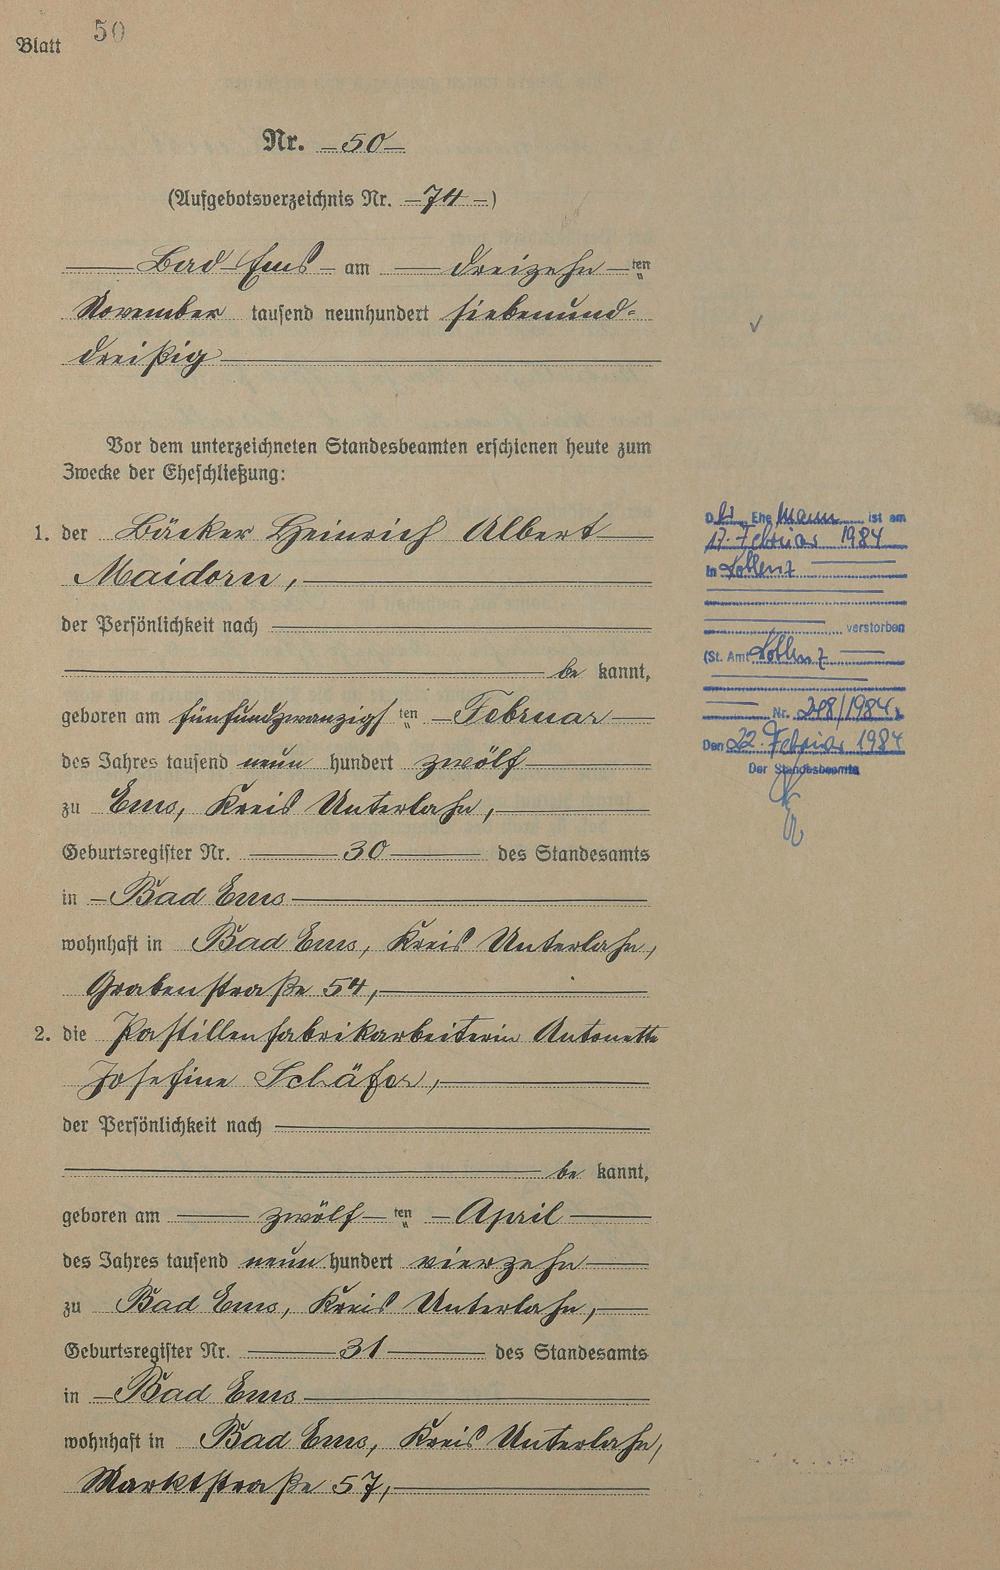 Blatt 50
Nr. 50
(Aufgebotsverzeichnis Nr. 74)
Bad Ems am dreizehn ten
November tausend neunhundert siebenund-
dreißig
Vor dem unterzeichneten Standesbeamten erschienen heute zum
Zwecke der Eheschließung:
1. der Bäcker Heinrich Albert
Maidorn,
der Persönlichkeit nach
be kannt,
geboren am fünfundzwanzigs ten Februar
des Jahres tausend neun hundert zwölf
zu Ems, Kreis Unterlahn,
Geburtsregister Nr. 30 des Standesamts
in Bad Ems
wohnhaft in Bad Ems, Kreis Unterlahn,
Grabenstraße 54,
2. die Pastillenfabrikarbeiterin Antonette
Josefine Schäfer,
der Persönlichkeit nach
be kannt,
geboren am zwölf ten April
des Jahres tausend neun hundert vierzehn
zu Bad Ems, Kreis Unterlahn,
Geburtsregister Nr. 31 des Standesamts
in Bad Ems
wohnhaft in Bad Ems, Kreis Unterlahn,
Marktstraße 57,
Der Ehe Mann ist am
17. Februar 1984
in Koblenz
verstorben
(St. Amt Koblenz
Nr. 298/1984)
Den 22. Februar 1984
Der Standesbeamte